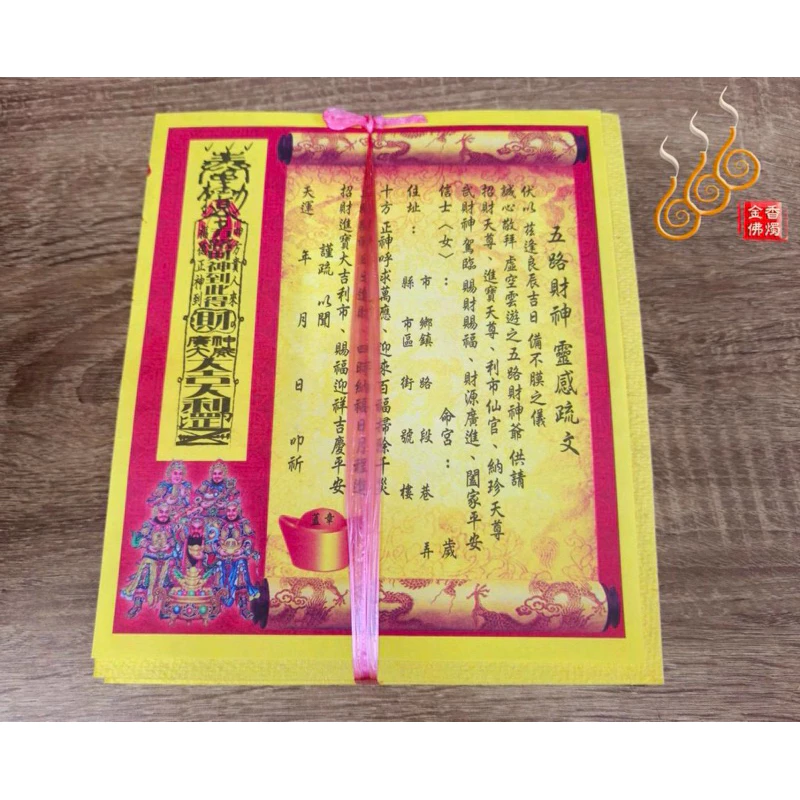 五路財神 靈感疏文
伏以 蓰逢良辰吉日 備不腆之儀
誠心敬拜 虛空雲遊之五路財神爺 供請
招財天尊、進寶天尊、利市仙官、納珍天尊
武財神 駕臨 賜財賜福、財源廣進、闔家平安
信士〈女〉： 命宮： 歲
住址： 市 鄉鎮 路 段 巷 弄
縣 市區 街 號 樓
十方正神呼求萬應、迎來百福掃除千災
四時納福日月
招財進寶大吉利市、賜福迎祥吉慶平安
謹疏 以聞
天運 年 月 日 叩祈
蓋章
財神到此得
財
貴人來
正神到
神威廣大
香燭
金佛